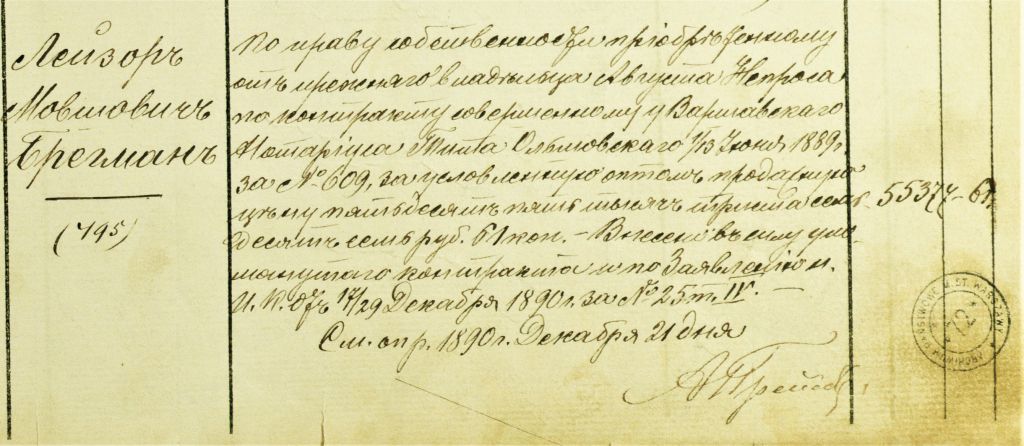 Лейзоръ
Мовшовичъ
Брегманъ
(795)
По праву собственности пріобрѣтенному
отъ прежняго владѣльца Августа
по контракту совершенному у Варшавскаго
Нотаріуса Тита Ольшовскаго 1/13 Іюня 1889 г.
за № 609, за условленную оптомъ продажную
цѣну пятьдесятъ пять тысячъ триста семь-
десятъ семь руб. 61 коп. – Внесено въ силу упо-
мянутаго контракта и по Заявленію н.
И. К. отъ 17/29 Декабря 1890 г. за № 25 т. IV. –
См. опр. 1890 г. Декабря 21 дня
55377 – 61
ARCHIWUM PAŃSTWOWE M. ST. WARSZAWY